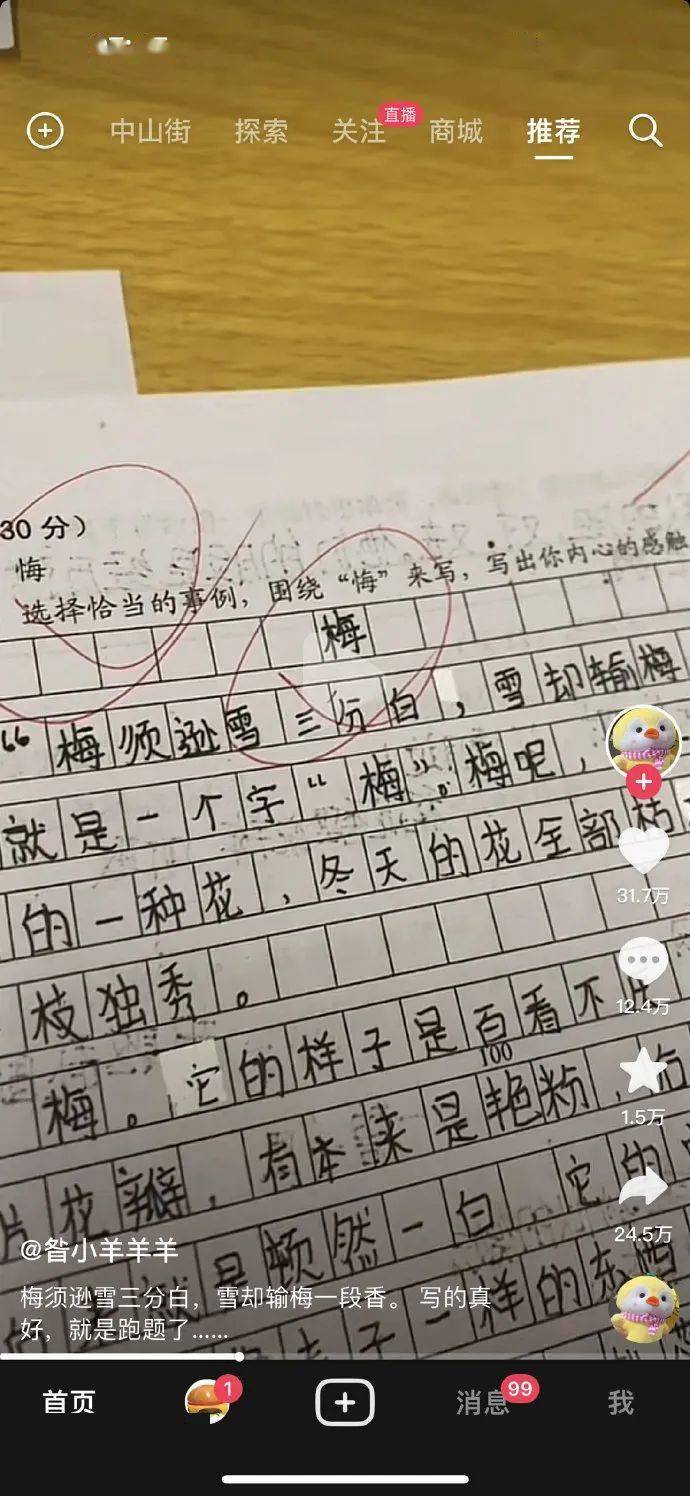 中山街 探索 关注 直播 商城 推荐
30 分）
悔
选择恰当的事例，围绕“悔”来写，写出你内心的感触
梅
“梅须逊雪三分白，雪却输梅
就是一个字“梅”。梅呢，一
的一种花，冬天的花全部枯
枝独秀。
梅。它的样子是百看不
100
片花瓣，有本来是艳粉，后
是顿然一白，它的
子一样的东西
31.7万
12.4万
1.5万
24.5万
@昝小羊羊羊
梅须逊雪三分白，雪却输梅一段香。 写的真
好，就是跑题了......
首页 1 消息 99 我